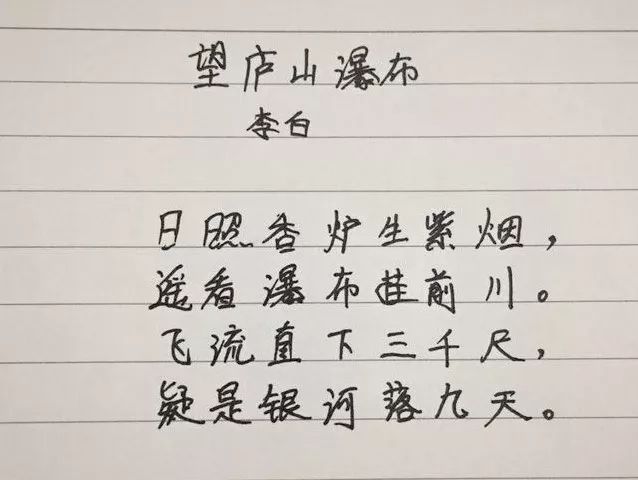 望庐山瀑布
李白
日照香炉生紫烟，
遥看瀑布挂前川。
飞流直下三千尺，
疑是银河落九天。